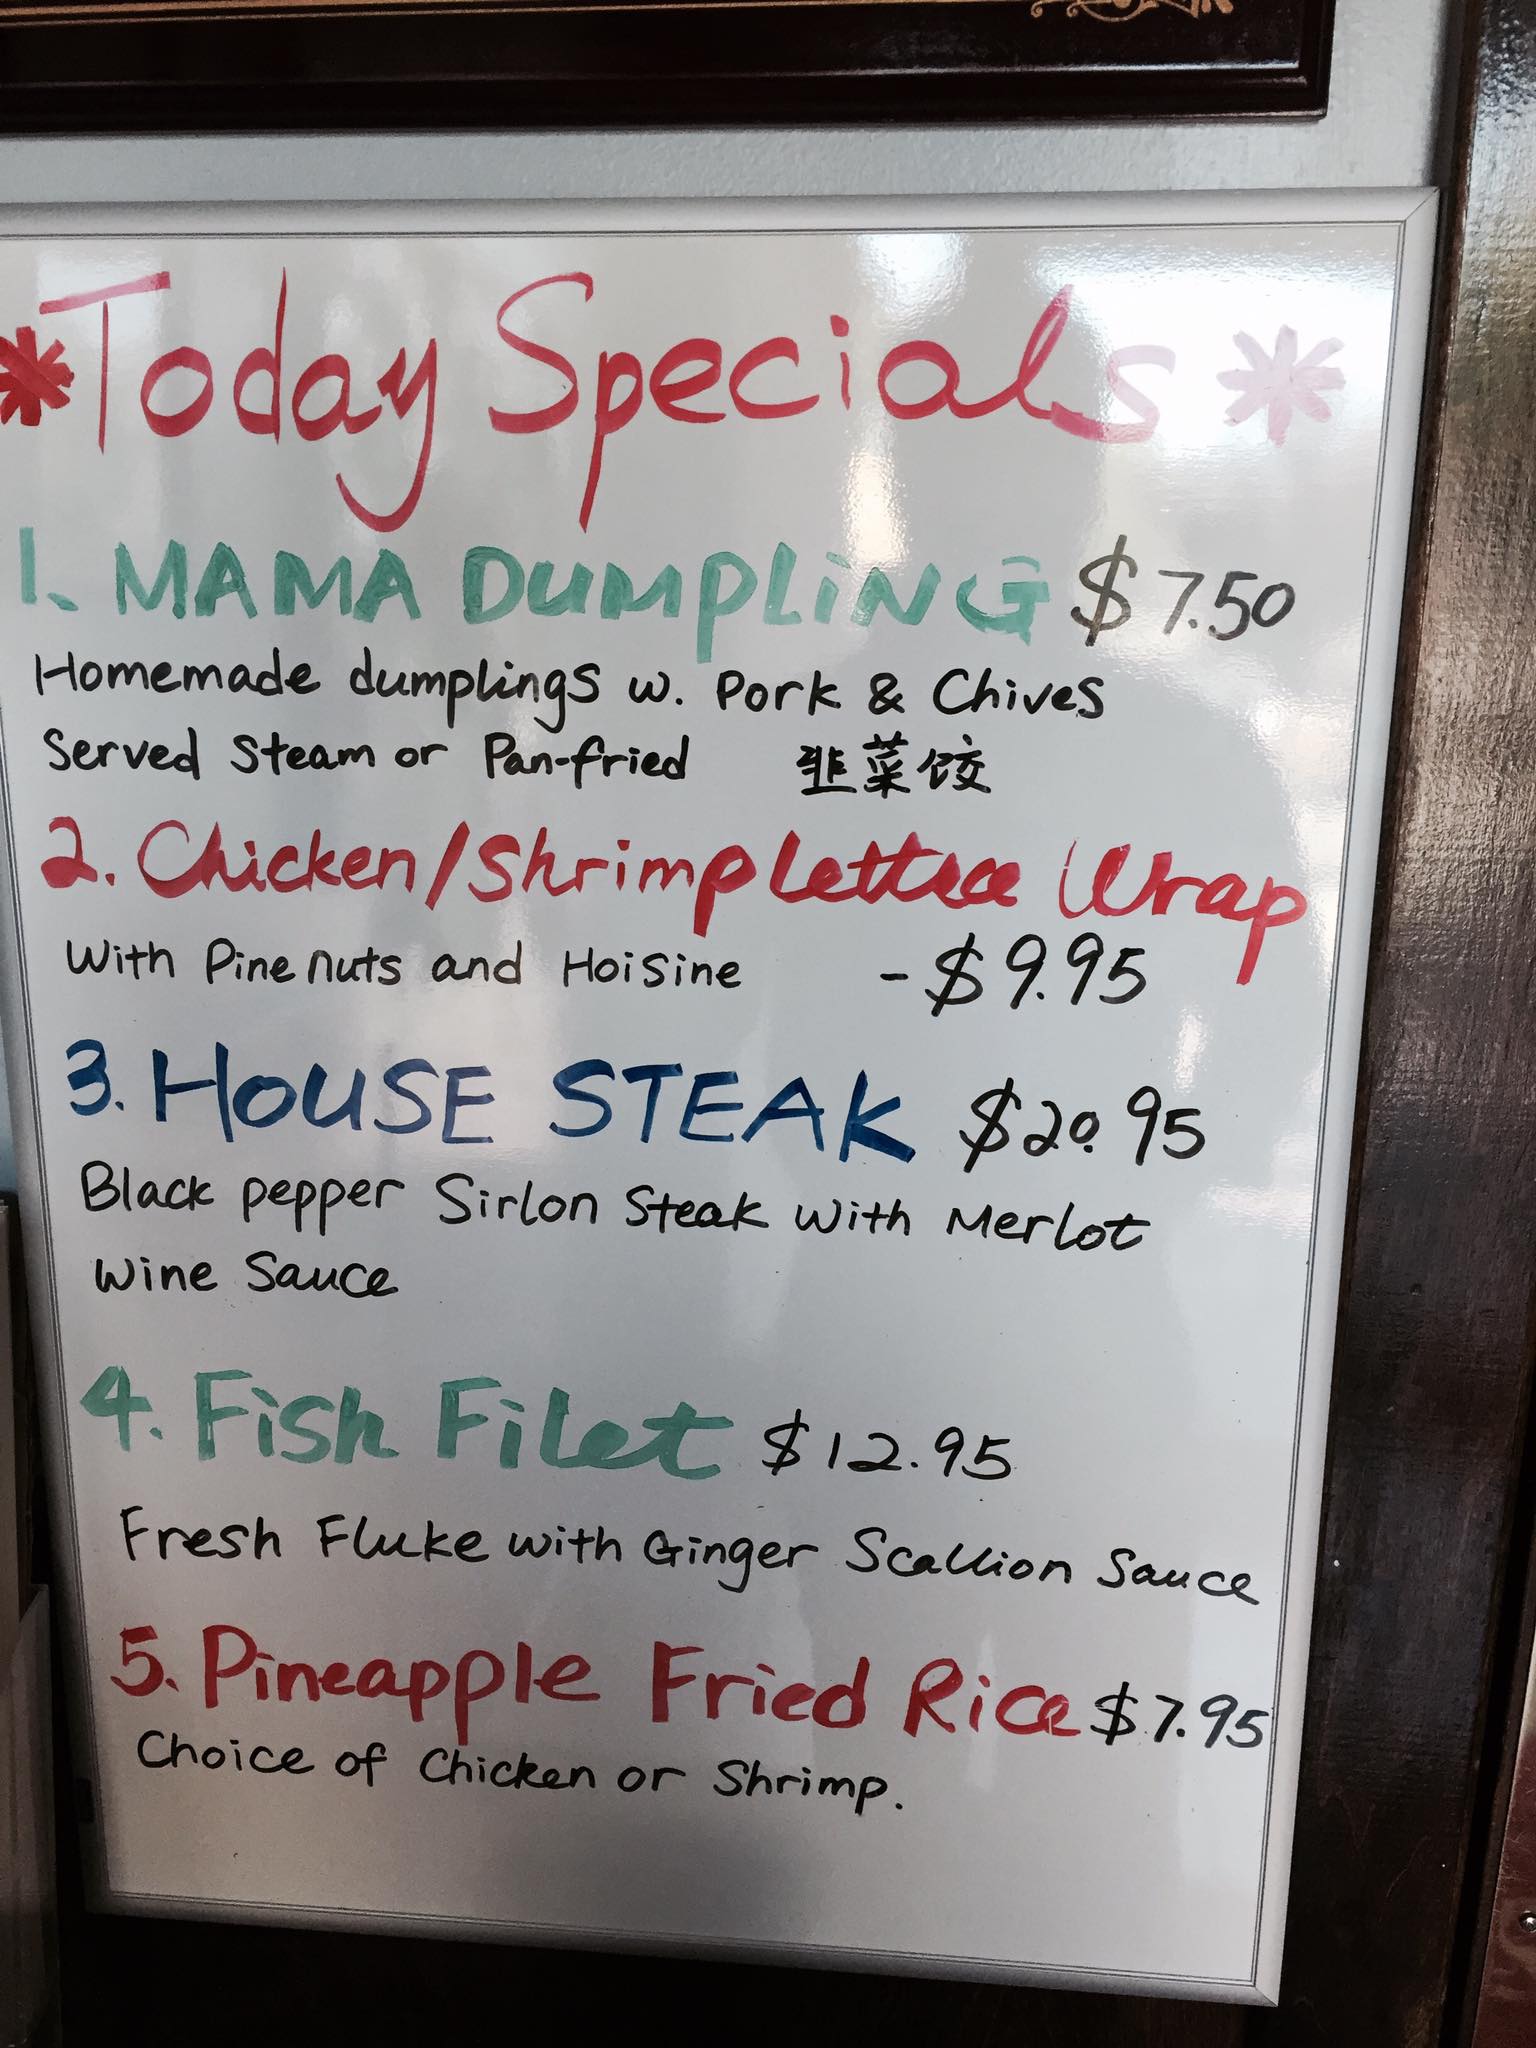 *Today Specials*
1. MAMA DUMPLiNG $7.50
Homemade dumplings w. Pork & Chives
Served Steam or Pan-fried 韭菜饺
2. Chicken/Shrimp Lettuce Wrap
With Pine nuts and Hoisine -$9.95
3. HOUSE STEAK $20.95
Black pepper Sirlon Steak with Merlot
Wine Sauce
4. Fish Filet $12.95
Fresh Fluke with Ginger Scallion Sauce
5. Pineapple Fried Rice $7.95
Choice of Chicken or Shrimp.